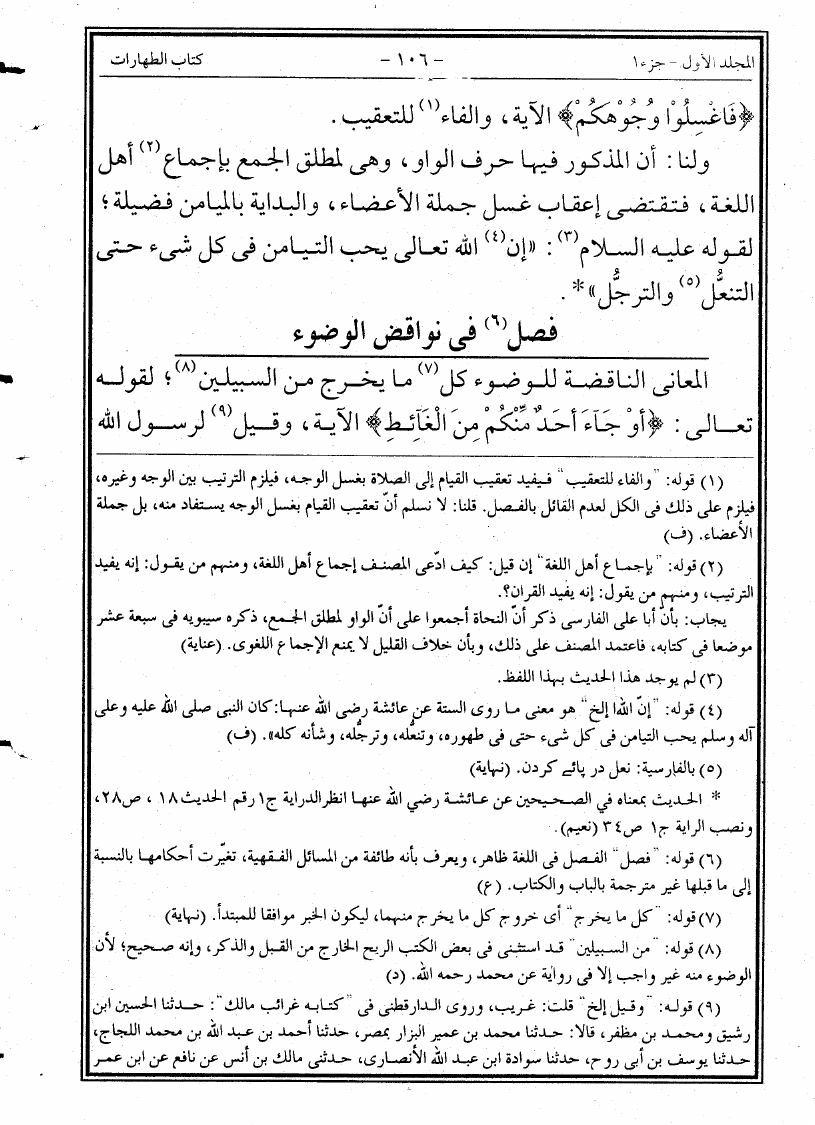 المجلد الأول - جزء١ - ١٠٦ - كتاب الطهارات
﴿فَاغْسِلُوْا وُجُوْهَكُمْ﴾ الآية، والفاء(١) للتعقيب.
ولنا: أن المذكور فيها حرف الواو، وهى لمطلق الجمع بإجماع(٢) أهل
اللغة، فتقتضى إعقاب غسل جملة الأعضاء، والبداية بالميامن فضيلة؛
لقوله عليه السلام(٣): «إن(٤) الله تعالى يحب التيامن فى كل شىء حتى
التنعُّل(٥) والترجُّل»*.
فصل(٦) فى نواقض الوضوء
المعانى الناقضة للوضوء كل(٧) ما يخرج من السبيلين(٨)؛ لقوله
تعالى: ﴿أوْ جَآءَ أحَدٌ مِّنكُمْ مِنَ الْغَآئِطِ﴾ الآية، وقيل(٩) لرسول الله
(١) قوله: "والفاء للتعقيب" فيفيد تعقيب القيام إلى الصلاة بغسل الوجه، فيلزم الترتيب بين الوجه وغيره،
فيلزم على ذلك فى الكل لعدم القائل بالفصل. قلنا: لا نسلم أنّ تعقيب القيام بغسل الوجه يستفاد منه، بل جملة
الأعضاء. (ف)
(٢) قوله: "بإجماع أهل اللغة" إن قيل: كيف ادّعى المصنف إجماع أهل اللغة، ومنهم من يقول: إنه يفيد
الترتيب، ومنهم من يقول: إنه يفيد القران؟.
يجاب: بأنّ أبا على الفارسى ذكر أنّ النحاة أجمعوا على أنّ الواو لمطلق الجمع، ذكره سيبويه فى سبعة عشر
موضعا فى كتابه، فاعتمد المصنف على ذلك، وبأن خلاف القليل لا يمنع الإجماع اللغوى. (عناية)
(٣) لم يوجد هذا الحديث بهذا اللفظ.
(٤) قوله: "إنّ الله إلخ" هو معنى ما روى الستة عن عائشة رضى الله عنها: كان النبى صلى الله عليه وعلى
آله وسلم يحب التيامن فى كل شىء حتى فى طهوره، وتنعُّله، وترجُّله، وشأنه كله». (ف)
(٥) بالفارسية: نعل در پائے كردن. (نهاية)
* الحديث بمعناه في الصحيحين عن عائشة رضي الله عنها انظر الدراية ج١ رقم الحديث١٨ ، ص٢٨،
ونصب الراية ج١ ص٣٤ (نعيم).
(٦) قوله: "فصل" الفصل فى اللغة ظاهر، ويعرف بأنه طائفة من المسائل الفقهية، تغيّرت أحكامها بالنسبة
إلى ما قبلها غير مترجمة بالباب والكتاب. (ع)
(٧) قوله: "كل ما يخرج" أى خروج كل ما يخرج منهما، ليكون الخبر موافقا للمبتدأ. (نهاية)
(٨) قوله: "من السبيلين" قد استثنى فى بعض الكتب الريح الخارج من القبل والذكر، وإنه صحيح؛ لأن
الوضوء منه غير واجب إلا فى رواية عن محمد رحمه الله. (د)
(٩) قوله: "وقيل إلخ" قلت: غريب، وروى الدارقطنى فى "كتابه غرائب مالك": حدثنا الحسين ابن
رشيق ومحمد بن مظفر، قالا: حدثنا محمد بن عمير البزار بمصر، حدثنا أحمد بن عبد الله بن محمد اللجاج،
حدثنا يوسف بن أبى روح، حدثنا سوادة ابن عبد الله الأنصارى، حدثنى مالك بن أنس عن نافع عن ابن عمر